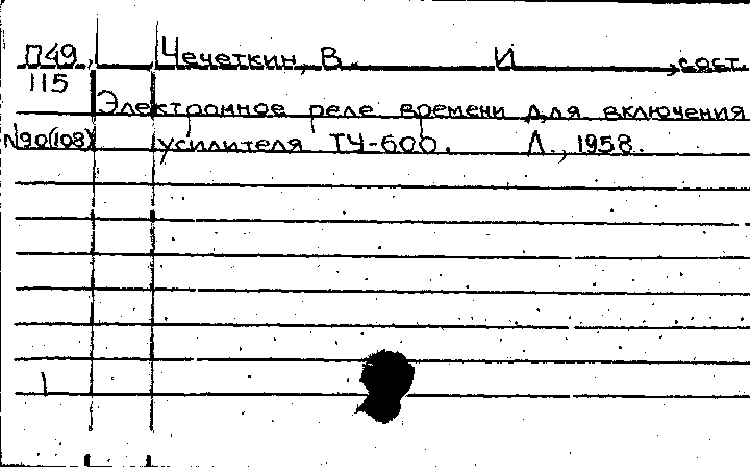 П49 Чечеткин, В. И , сост.
115
Электронное реле времени для включения
N90(108) усилителя ТУ-600. Л., 1958.